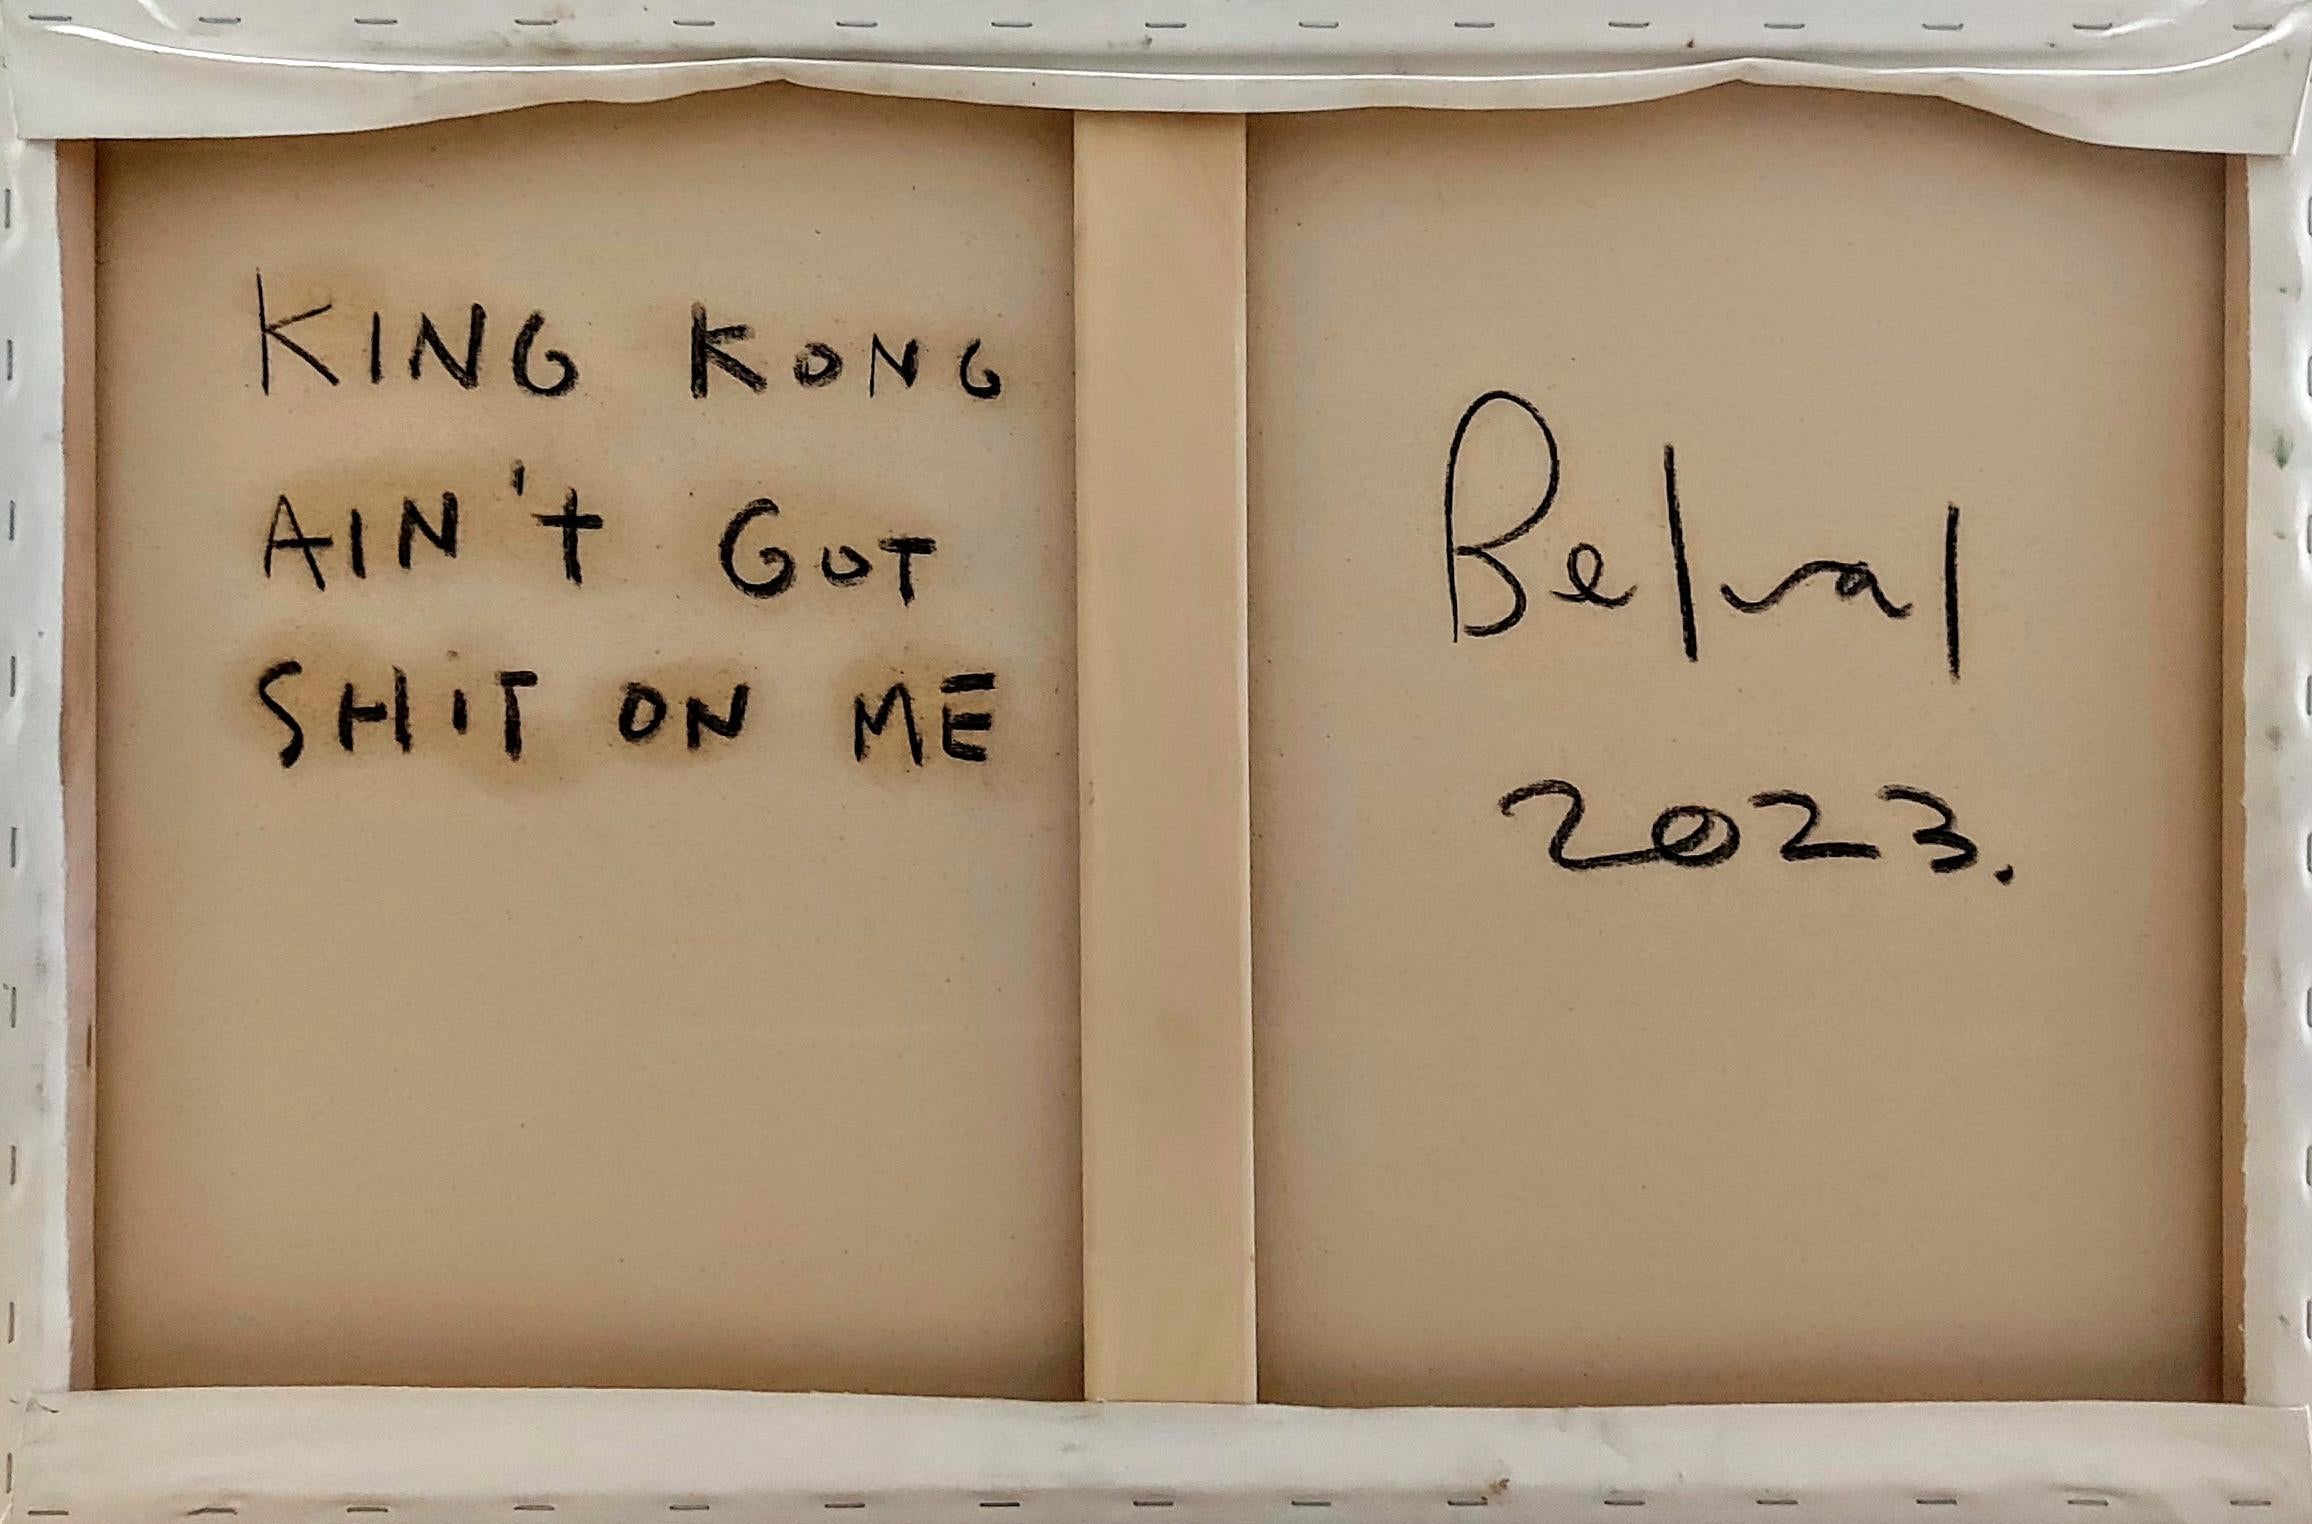 KING KONG
AIN't GOT
SHIT ON ME
Belval
2023.